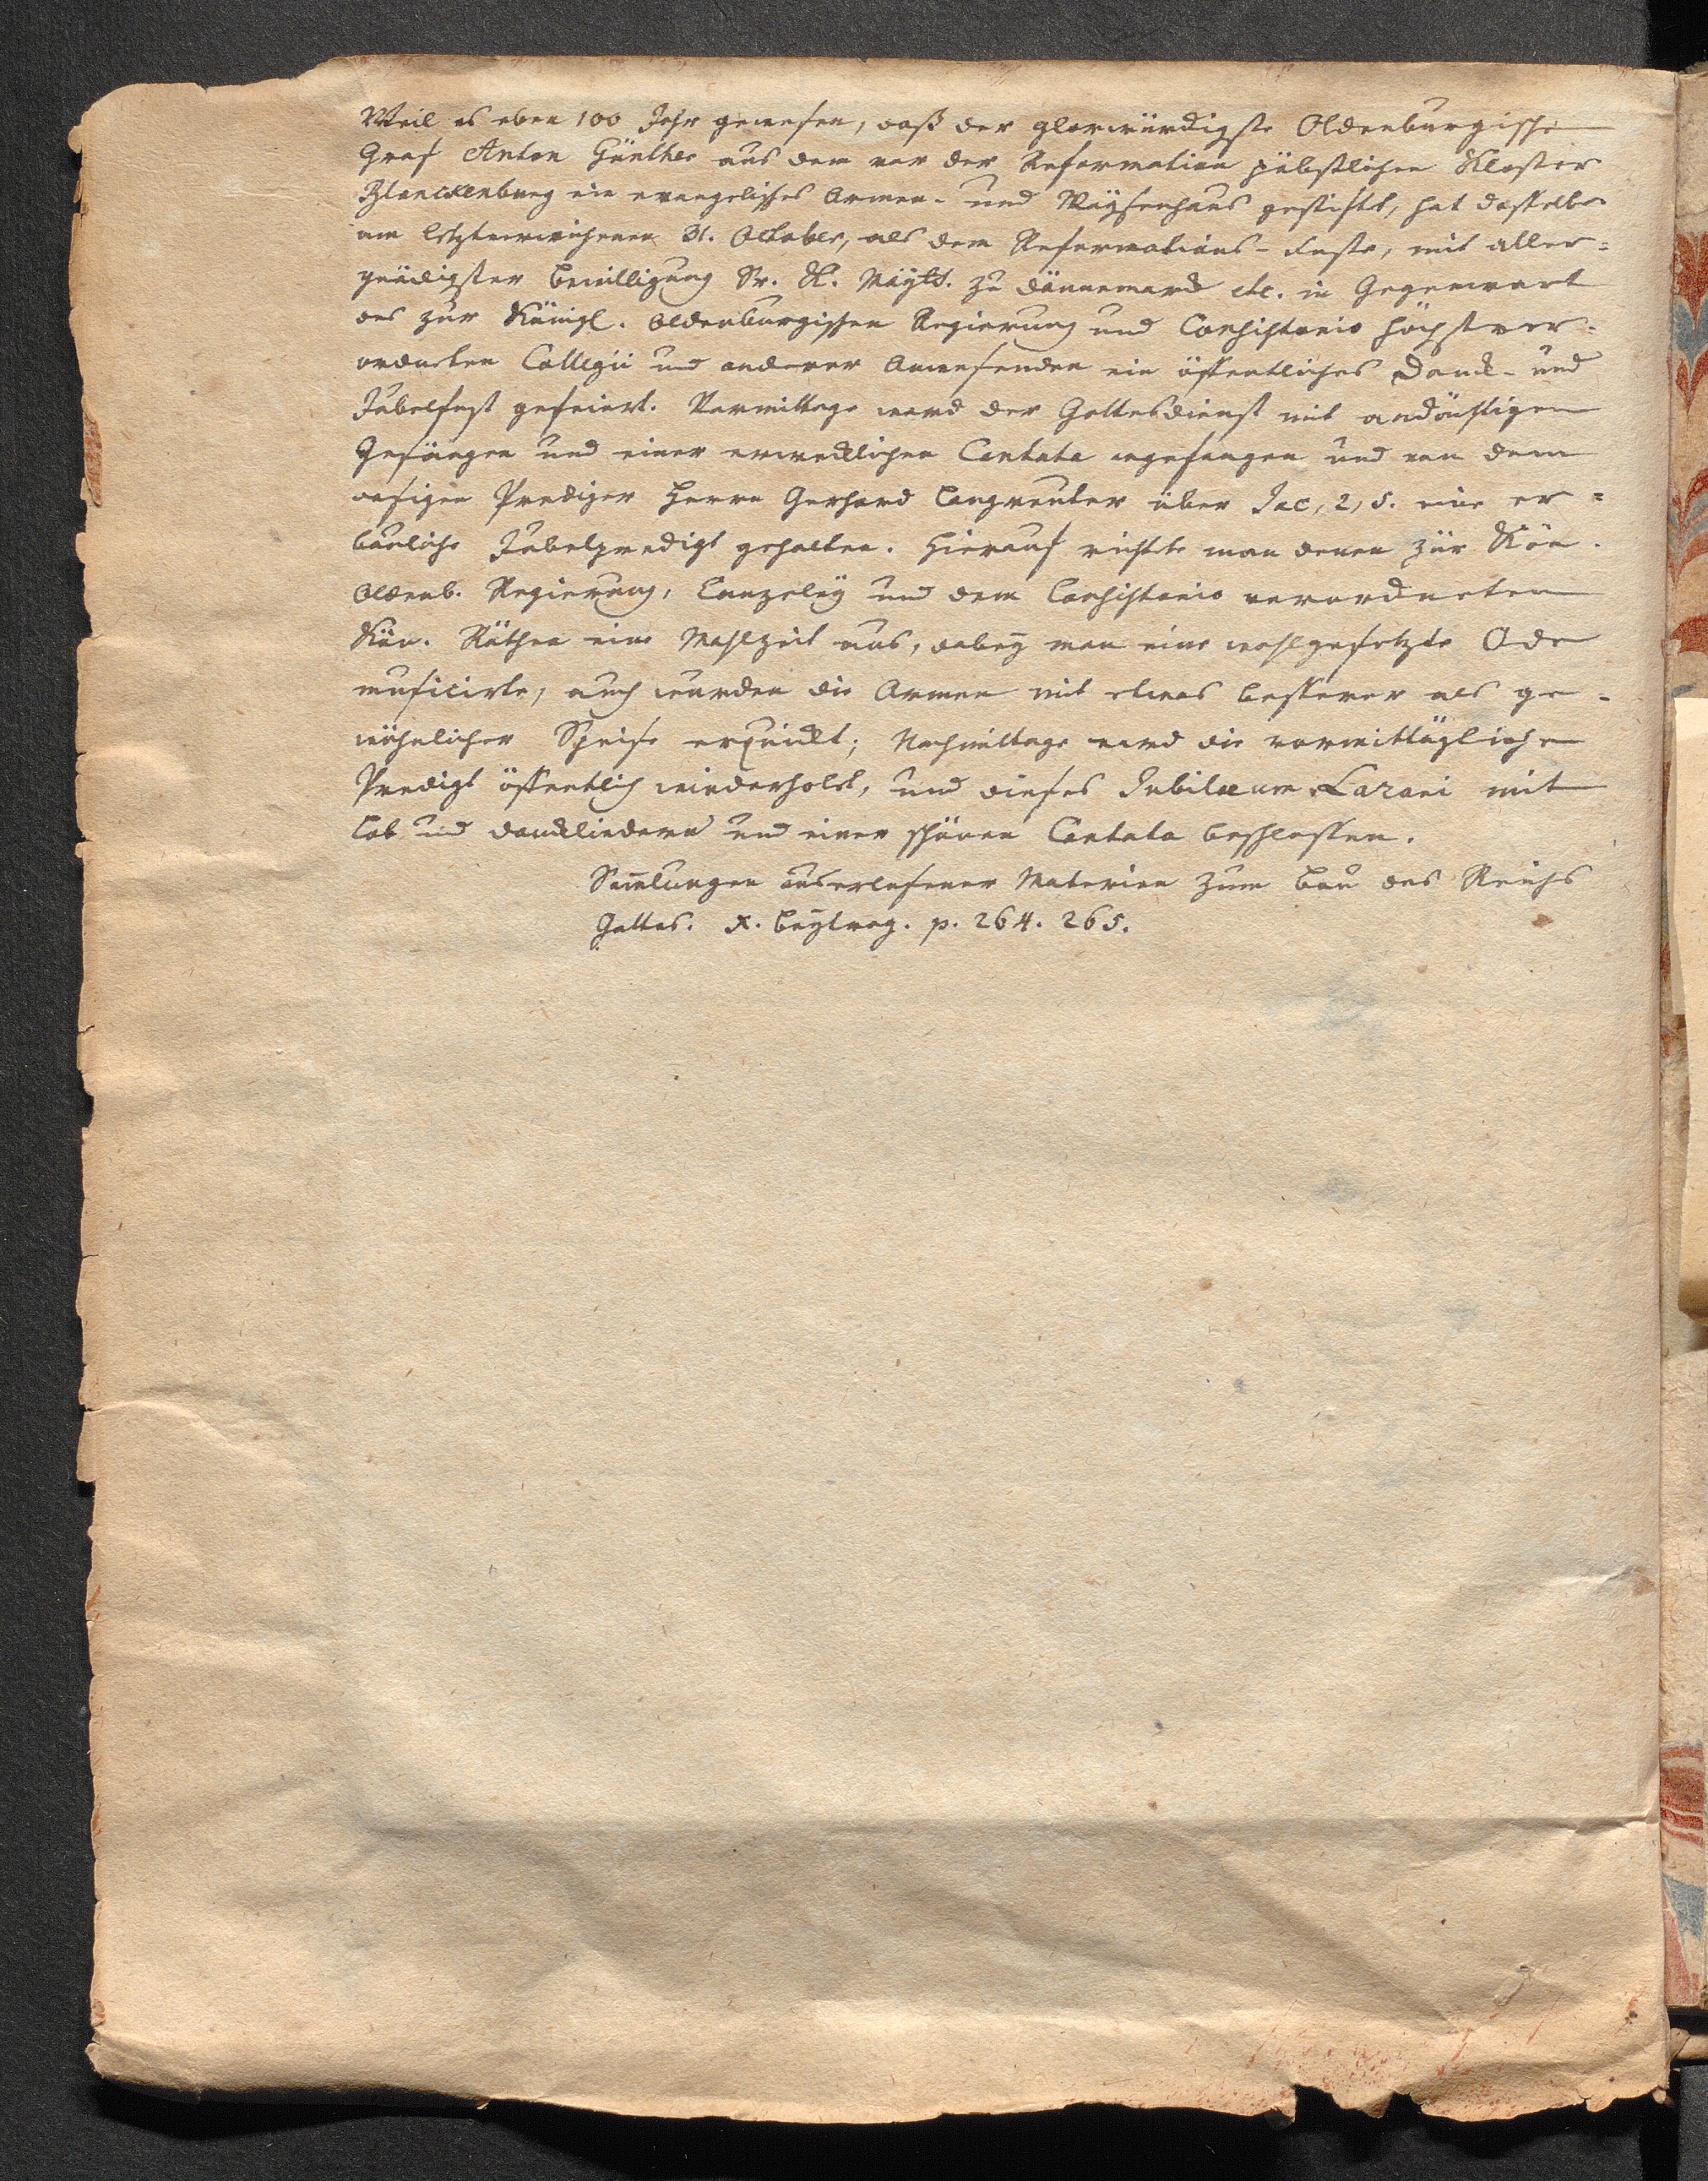 Weil es eben 100 Jahr gewesen, daß der glorwürdigste Oldenburgische
Graf Anton Günther aus dem vor der Reformation päbstlichen Kloster
Blanckenburg ein evangelisches Armen- und Waÿsenhaus gestiftet, hat dasselbe
am letztverwichenen 31. October, als dem Reformations-Feste, mit aller=
gnädigster Bewilligung Sr. K. Maytt. zu Dännemarck etc. in Gegenwart
des zur Königl. Oldenburgischen Regierung und Consistorio höchstver=
ordneten Collegii und anderer Anwesenden ein öffentliches Danck- und
Jubelfest gefeiert. Vormittags ward der Gottesdienst mit andächtigen
Gesängen und einer erwecklichen Cantata angefangen und von dem
dasigen Prediger Herrn Gerhard Langreuter über Jac, 2, 5. eine er=
bauliche Jubelpredigt gehalten. Hierauf richtete man denen zur Kön.
Oldenb. Regierung, Canzeleÿ und dem Consistorio verordneten
Kön. Räthen eine Mahlzeit aus, dabeÿ man eine wohlgesetzte Ode
musicirte, auch wurden die Armen mit etwas besserer als ge-
wöhnlicher Speise erquickt; Nachmittags ward die vormittägliche
Predigt öffentlich wiederholet, und dieses Jubilæum Lazari mit
Lob und Danckliedern und einer schönen Cantata beschlossen.
Sam̄lungen auserlesener Materien zum Bau des Reichs
Gottes. X. Beÿtrag. p. 264. 265.